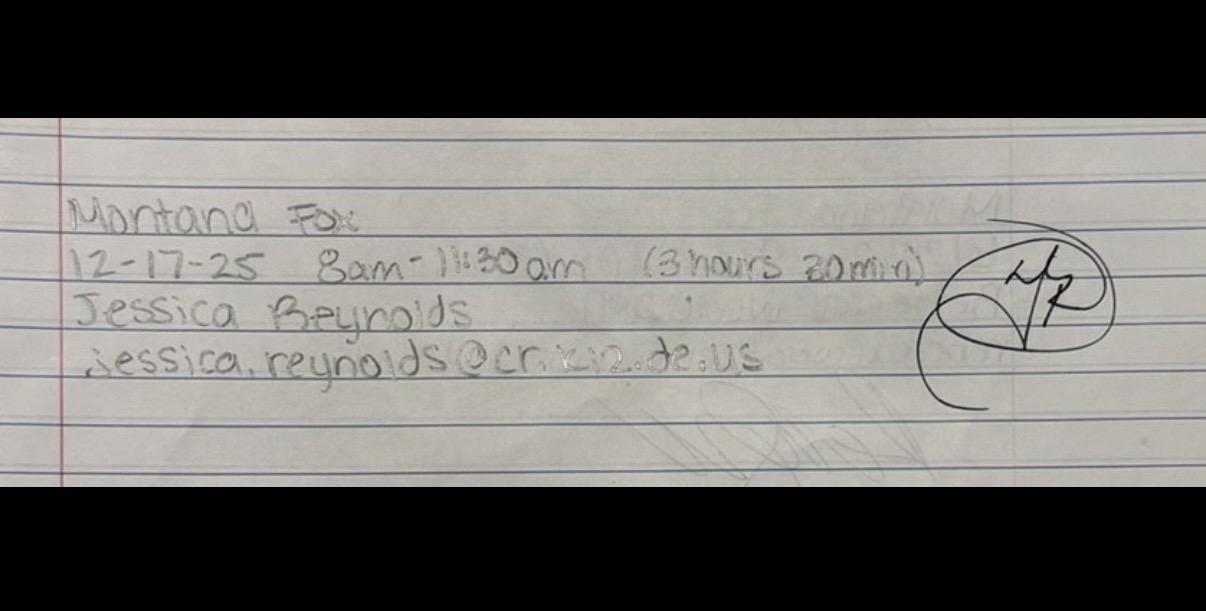 Montana Fox
12-17-25 8am-11:30am (3 hours 30min)
Jessica Reynolds
jessica.reynolds@cr.k12.de.us